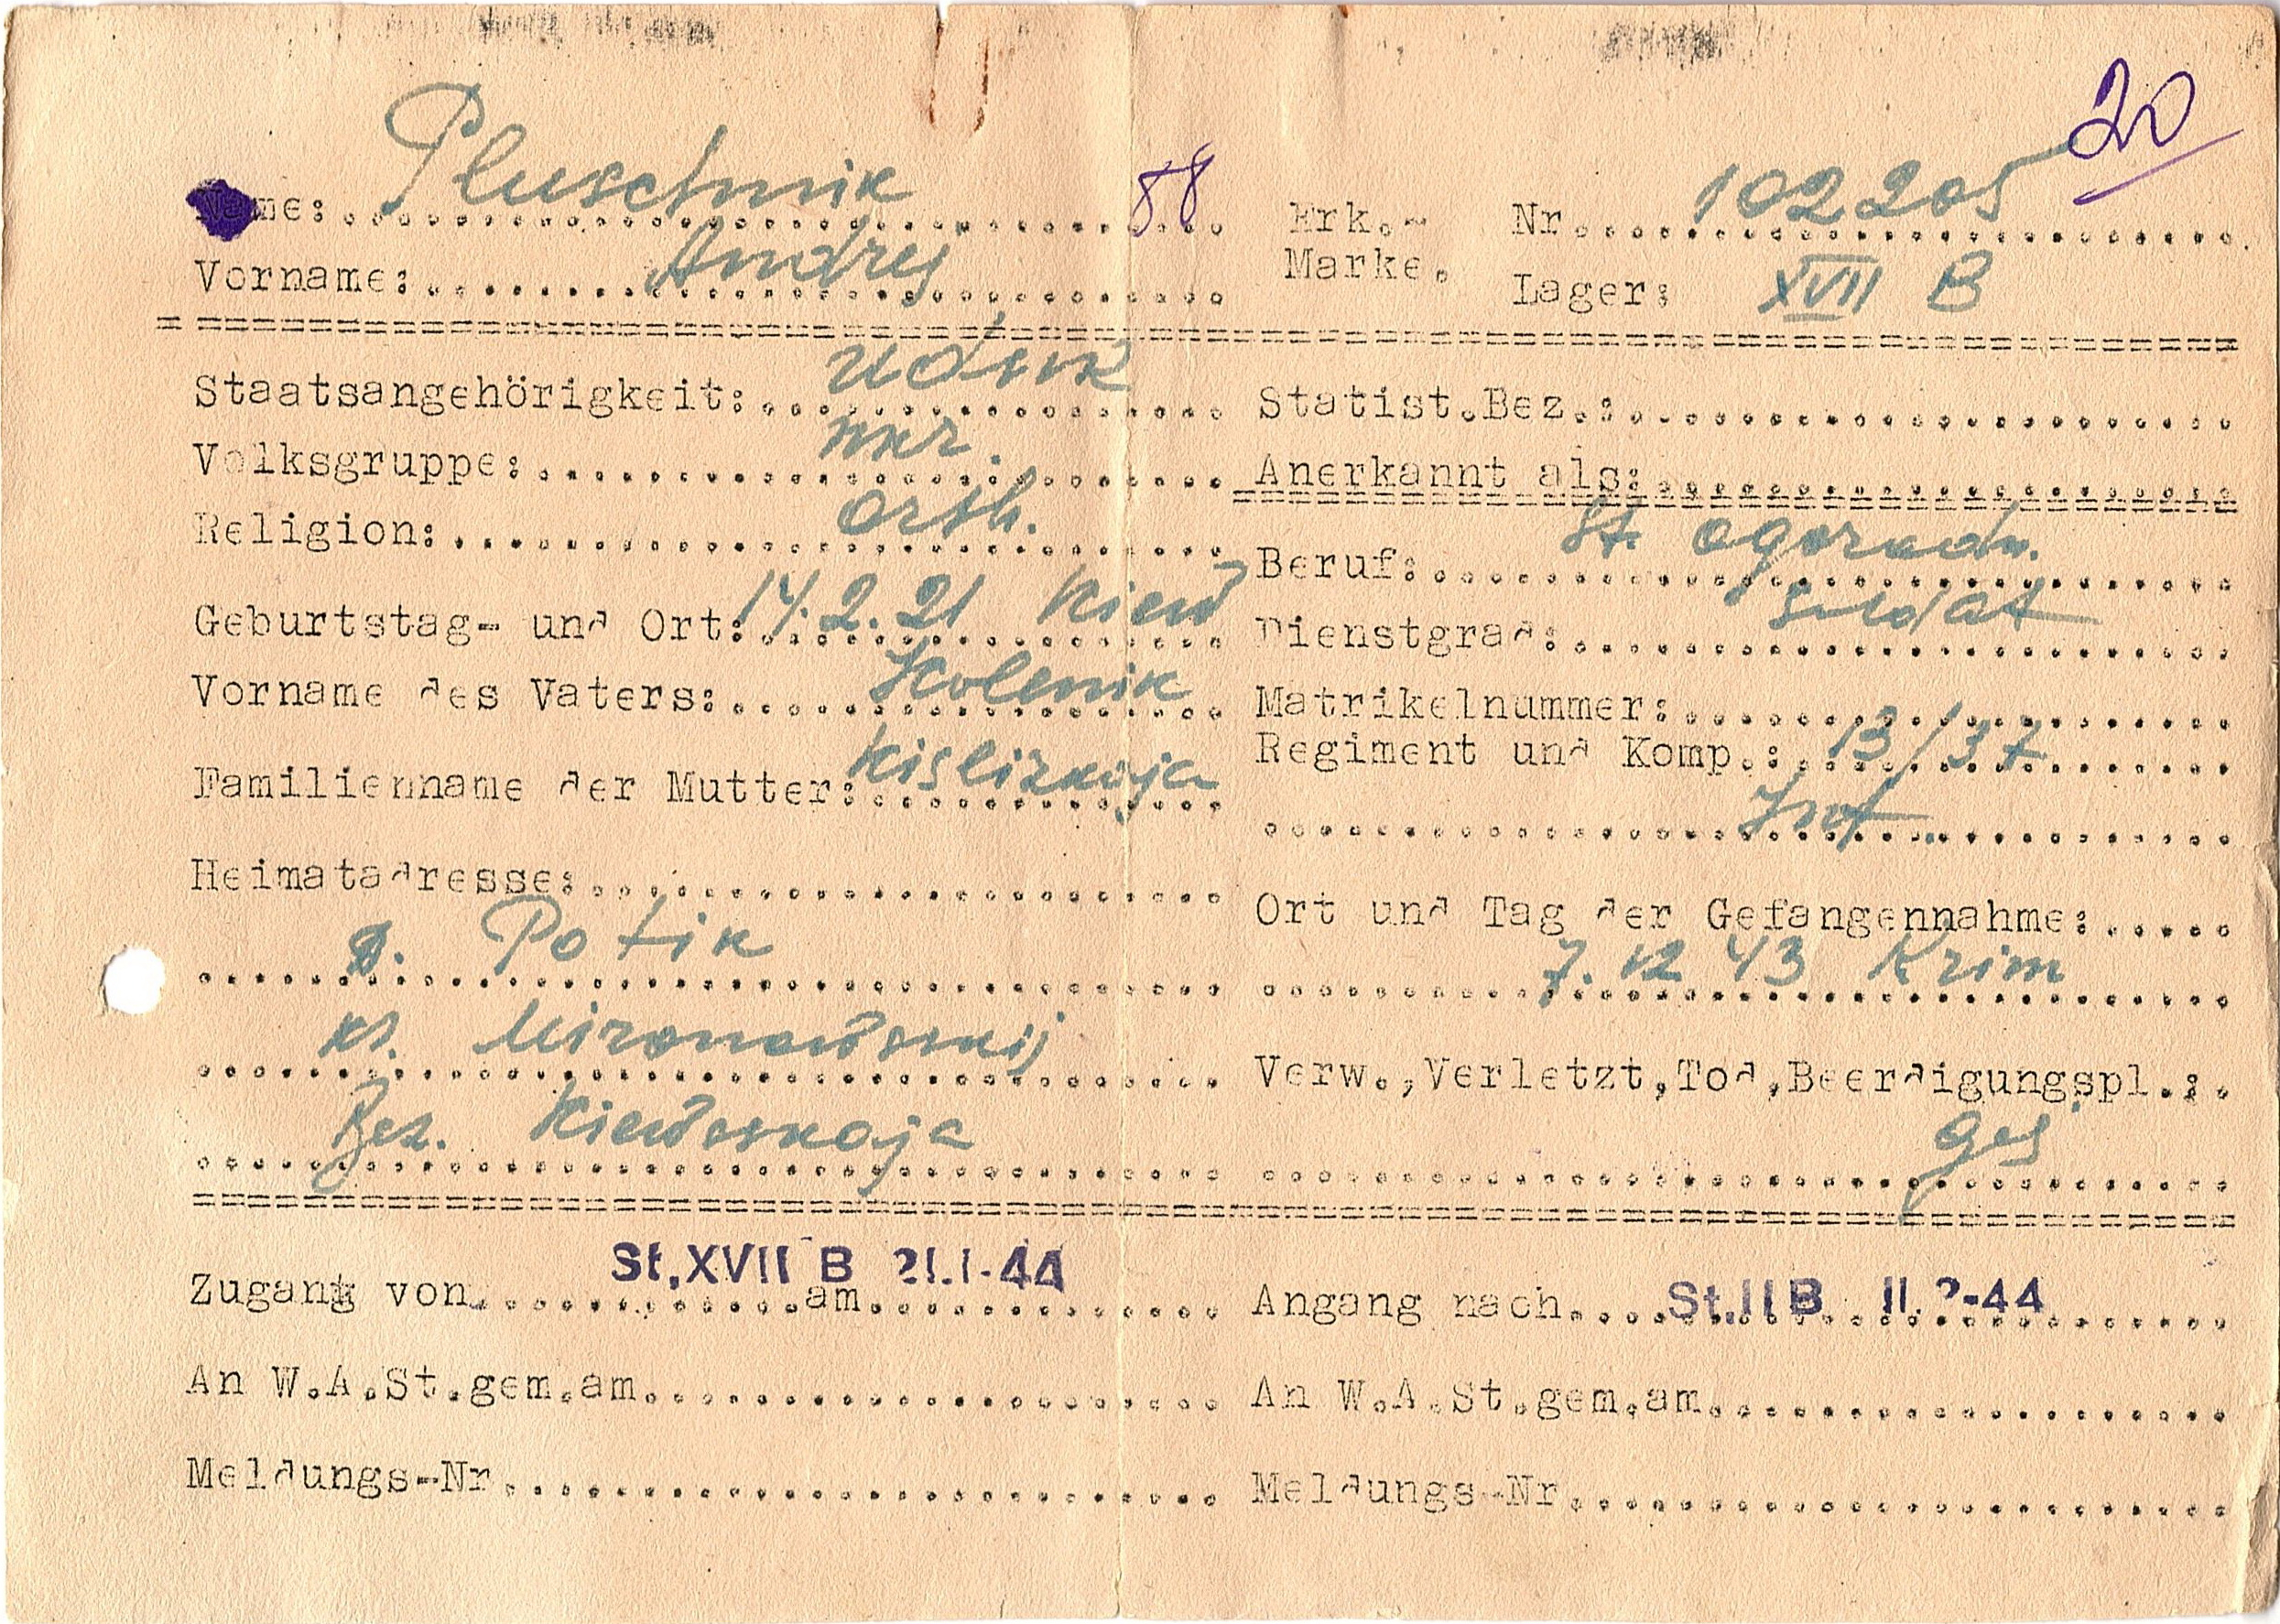 20
Name: Pluschnik 88
Erk.- Nr. 102205
Vorname: Andrej
Marke. Lager: XVII B
Staatsangehörigkeit: UdSSR
Statist.Bez.:
Volksgruppe: ukr.
Anerkannt als:
Religion: orth.
Beruf: St. ogorodn.
Geburtstag- und Ort: 14.2.21 Kiew
Dienstgrad: Soldat
Vorname des Vaters:
Matrikelnummer:
Regiment und Komp.: 13/37
Familienname der Mutter: Kislizkaja
Inf.
Heimatadresse:
Ort und Tag der Gefangennahme:
Potik
7. 12 43 Krim
Kr. Mironowskij
Verw.,Verletzt,Tod,Beerdigungspl.:
Bez. Kiewskaja
ges
Zugang von St.XVII B am 21.1-44
Angang nach St.II B 11.2-44
An W.A.St.gem.am
An W.A.St.gem.am
Meldungs-Nr
Meldungs-Nr